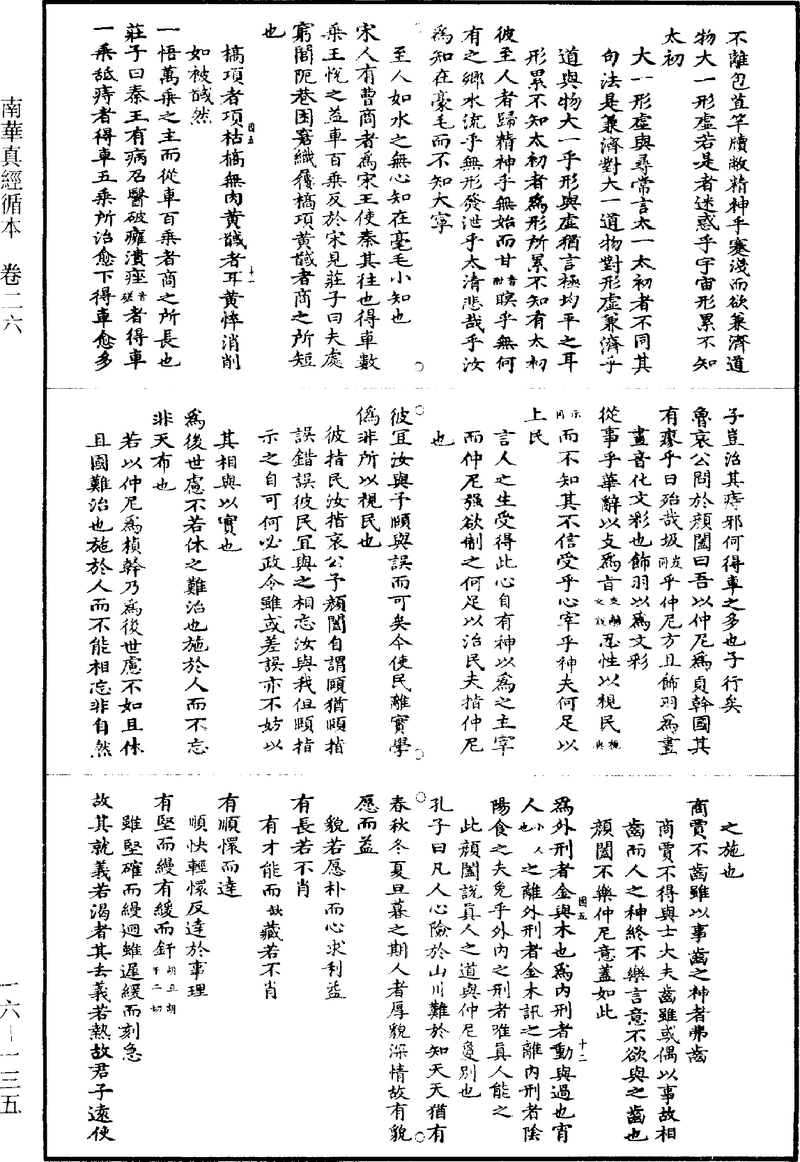 南華真經循本 卷二六
一六-一三五
不離包苴竿牘敝精神乎蹇淺而欲兼濟道
物大一形虛若是者迷惑乎宇宙形累不知
太初
大一形虛與尋常言太一太初者不同其
句法是兼濟對大一道物對形虛兼濟乎
道與物大一乎形與虛猶言極均平之耳
形累不知太初者為形所累不知有太初
彼至人者歸精神乎無始而甘音酣瞑乎無何
有之鄉水流乎無形發泄乎太清悲哉乎汝
為知在豪毛而不知大寧
至人如水之無心知在毫毛小知也
宋人有曹商者為宋王使秦其往也得車數
乘王悅之益車百乘反於宋見莊子曰夫處
窮閭阨巷困窘織屨槁項黃馘者商之所短
也
因五 十一
槁項者項枯槁無肉黃馘者耳黃悴消削
如被馘然
一悟萬乘之主而從車百乘者商之所長也
莊子曰秦王有病召醫破癰潰痤音磋者得車
一乘舐痔者得車五乘所治愈下得車愈多
子豈治其痔邪何得車之多也子行矣
魯哀公問於顏闔曰吾以仲尼為貞幹國其
有瘳乎曰殆哉圾乎仲尼方且飾羽為畫
畫音化文彩也飾羽以為文彩
從事乎華辭以支為旨忍性以視民
而不知其不信受乎心宰乎神夫何足以
上民
言人之生受得此心自有神以為之主宰
而仲尼强欲制之何足以治民夫指仲尼
也
彼宜汝與予頤與誤而可矣今使民離實學
偽非所以視民也
彼指民汝指哀公予顏闔自謂頤猶頤指
誤錯誤彼民宜與之相忘汝與我但頤指
示之自可何必政令雖或差誤亦不妨以
其相與以實也
為後世慮不若休之難治也施於人而不忘
非天布也
若以仲尼為楨幹乃為後世慮不如且休
且國難治也施於人而不能相忘非自然
之施也
商賈不齒雖以事齒之神者弗齒
商賈不得與士大夫齒雖或偶以事故相
齒而人之神終不樂言意不欲與之齒也
顏闔不樂仲尼意蓋如此
因五 十二
為外刑者金與木也為內刑者動與過也宵
人小人也之離外刑者金木訊之離內刑者陰
陽食之夫免乎外內之刑者唯真人能之
此顏闔說真人之道與仲尼夐別也
孔子曰凡人心險於山川難於知天天猶有
春秋冬夏旦暮之期人者厚貌深情故有貌
愿而益
貌若愿朴而心求利益
有長若不肖
有才能而缺藏若不肖
有順懁而達
順快輕懁反達於事理
有堅而縵有緩而釬胡旦胡干二切
雖堅確而縵迴雖遲緩而刻急
故其就義若渴者其去義若熱故君子遠使